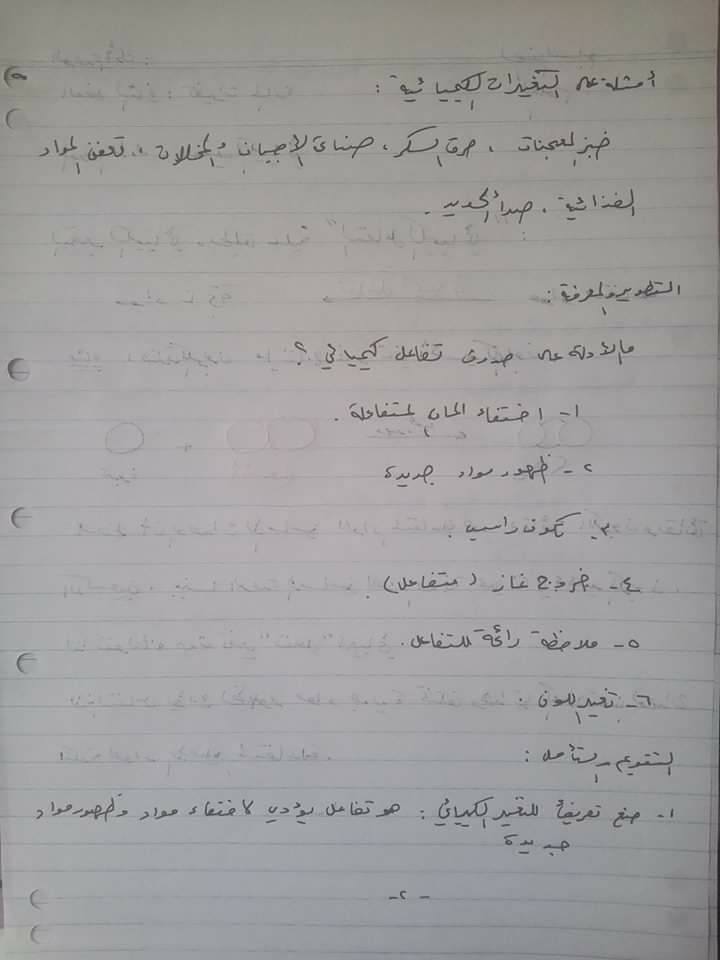 أمثلة على التغيرات الكيميائية :
خبز المعجنات ، حرق السكر ، صناعة الأجبان والمخللات ، تعفن المواد
الغذائية ، صدأ الحديد .
التطوير والمعرفة :
ما الأدلة على حدوث تفاعل كيميائي ؟
١- اختفاء المواد المتفاعلة .
٢- ظهور مواد جديدة
٣- تكون راسب .
٤- خروج غاز ( متفاعل )
٥- ملاحظة رائحة للتفاعل .
٦- تغير اللون .
التقويم والتأمل :
١- ضع تعريفاً للتغير الكيميائي : هو تفاعل يؤدي لاختفاء مواد وظهور مواد
جديدة
-٢-